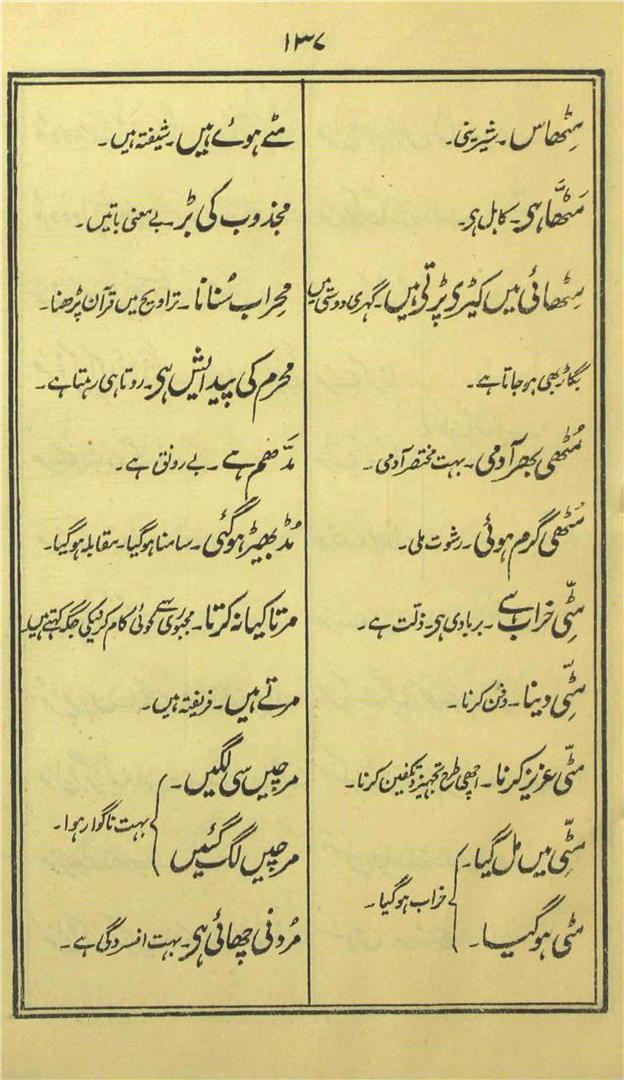 ۱۳۷
مِٹھاس۔ شیرینی۔
مَٹھّا ہی۔ کاہل ہی۔
مِٹھائی میں کیڑی پڑتی ہیں۔ گہری دوستی میں
بگاڑ بھی ہو جاتا ہے۔
مُٹھی بھر آدمی۔ بہت مختصر آدمی۔
مُٹھی گرم ہوئی۔ رشوت ملی۔
مِٹّی خراب ہے۔ بربادی ہی۔ ذلّت ہے۔
مِٹّی دینا۔ دفن کرنا۔
مٹّی عزیز کرنا۔ اچھی طرح تجہیز و تکفین کرنا۔
مِٹّی میں مل گیا۔
مٹی ہو گیا۔
خراب ہو گیا۔
مٹے ہوئے ہیں۔ شیفتہ ہیں۔
مجذوب کی بڑ۔ بے معنی باتیں۔
محِراب سُنانا۔ تراویح میں قرآن پڑھنا۔
محرم کی پیدایش ہی۔ روتا ہی رہتا ہے۔
مدّھم ہے۔ بے رونق ہے۔
مُڈبھیڑ ہو گئی۔ سامنا ہو گیا۔ مقابلہ ہو گیا۔
مرتا کیا نہ کرتا۔ مجبوری سے کوئی کام کرنیکی جگہ کہتے ہیں۔
مرتے ہیں۔ فریفتہ ہیں۔
مرچیں سی لگیں۔
مرچیں لگ گئیں
بہت ناگوار ہوا۔
مُردنی چھائی ہی۔ بہت افسردگی ہے۔